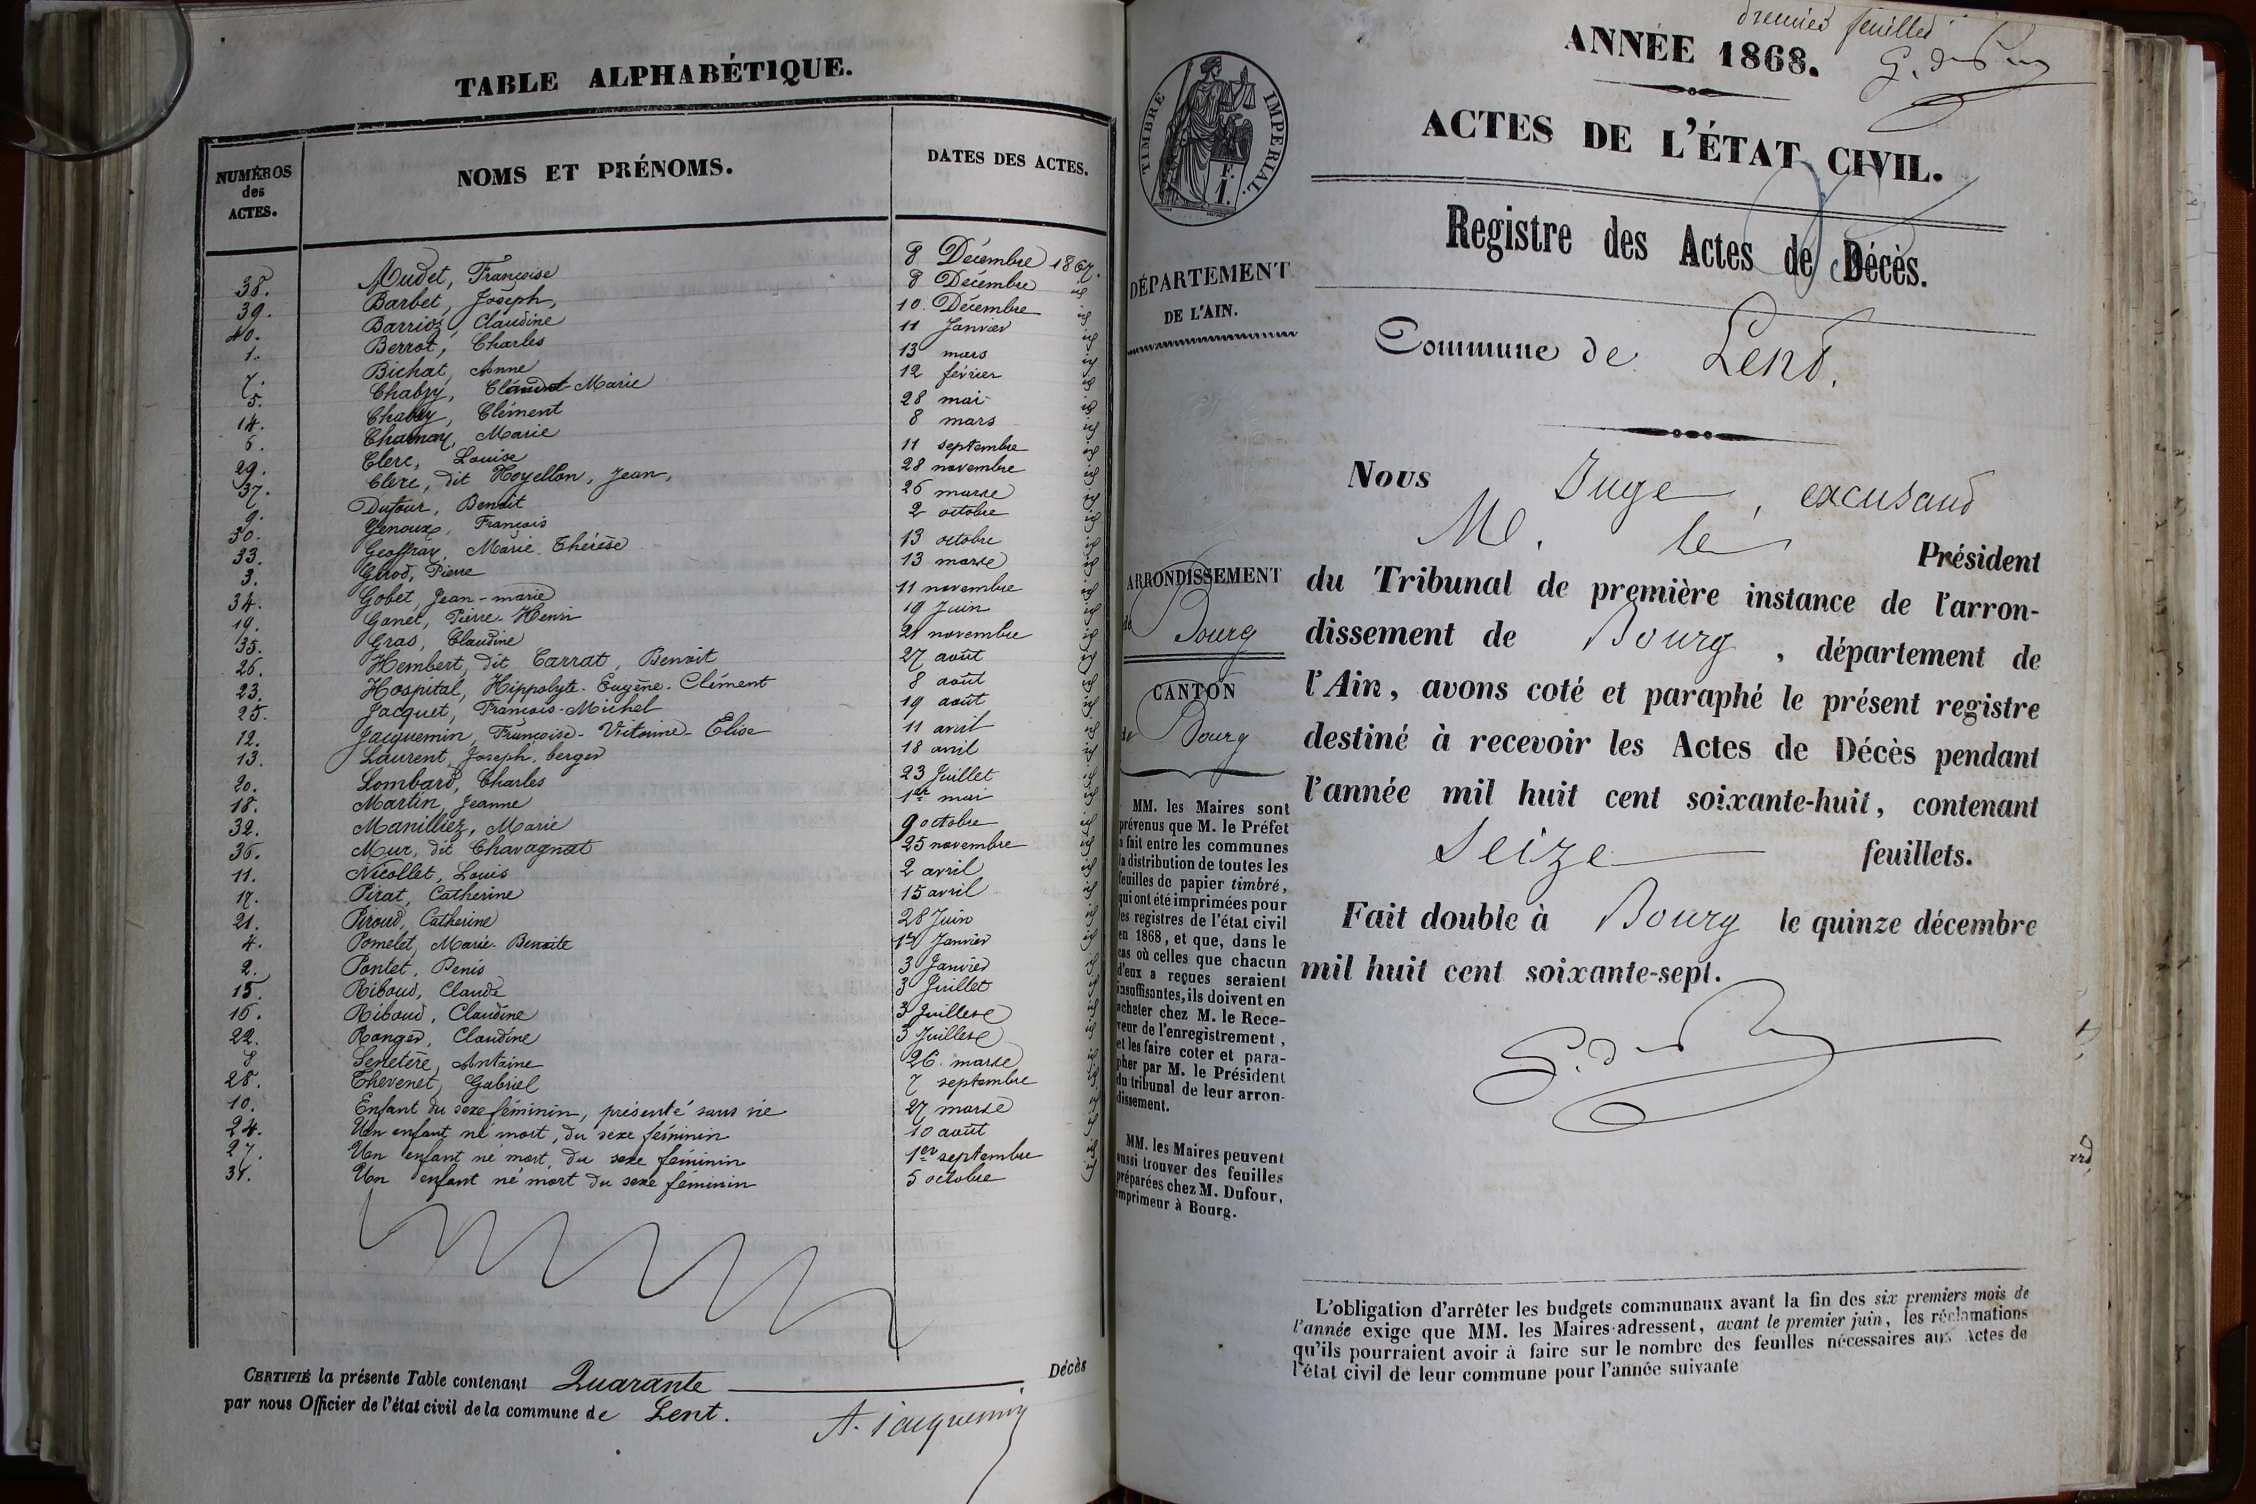 TABLE ALPHABÉTIQUE.
NUMÉROS des ACTES. NOMS ET PRÉNOMS. DATES DES ACTES.
38. Audet, Françoise 8 Décembre 1867.
39. Barbet, Joseph, 8 Décembre id
40. Barrioz, Claudine 10 Décembre id
1. Berrot, Charles 11 Janvier id
7. Bichat, Anne 13 mars id
5. Chabry, Marie 12 février id
14. Chabry, Clément 28 mai id
6. Charnay, Marie 8 mars id
29. Clerc, Louise 11 septembre id
37. Clerc, dit Noyellon, Jean, 28 novembre id
9. Dufour, Benoit 26 mars id
30. Genoux, François 2 octobre id
33. Geoffray, Marie Thérèse 13 octobre id
3. Girod, Pierre 13 mars id
34. Gobet, Jean-marie 11 novembre id
19. Gonet, Pierre-Henri 19 Juin id
35. Gras, Claudine 21 novembre id
26. Humbert, dit Carrat, Benoit 27 août id
23. Hospital, Hippolyte-Eugène-Clément 8 août id
25. Jacquet, François-Michel 19 août id
12. Jacquemin, Françoise-Victorine-Elise 11 avril id
13. Laurent, Joseph, berger 18 avril id
20. Lombard, Charles 23 Juillet id
18. Martin, Jeanne 1er mai id
32. Manilliez, Marie 9 octobre id
36. Mur, dit Chavagnat 25 novembre id
11. Nicollet, Louis 2 avril id
17. Pirat, Catherine 15 avril id
21. Piroud, Catherine 28 Juin id
4. Pomelet, Marie-Benoite Janvier id
2. Pontet, Denis 3 Janvier id
15. Riboud, Claude 3 Juillet id
16. Riboud, Claudine 3 Juillet id
22. Ronger, Claudine 3 Juillet id
8 Senetère, Antoine 26 mars id
28. Thevenet, Gabriel 7 septembre id
10. Enfant du sexe féminin, présenté sans vie 27 mars id
24. Un enfant né mort, du sexe féminin 10 août id
27. Un enfant né mort, du sexe féminin 1er septembre id
31. Un enfant né mort du sexe féminin 5 octobre id
CERTIFIÉ la présente Table contenant Quarante Décès
par nous Officier de l'état civil de la commune de Lent.
A. Jacquemin
premier feuillet
ANNÉE 1868.
ACTES DE L'ÉTAT CIVIL.
Registre des Actes de Décès.
TIMBRE IMPÉRIAL.
F.
1.
DÉPARTEMENT
DE L'AIN.
Commune de Lent.
Nous Juge, excusant
M. le Président
du Tribunal de première instance de l'arron-
dissement de Bourg, département de
l'Ain, avons coté et paraphé le présent registre
destiné à recevoir les Actes de Décès pendant
l'année mil huit cent soixante-huit, contenant
Seize feuillets.
Fait double à Bourg le quinze décembre
mil huit cent soixante-sept.
ARRONDISSEMENT
de Bourg
CANTON
de Bourg
MM. les Maires sont
prévenus que M. le Préfet
a fait entre les communes
la distribution de toutes les
feuilles de papier timbré,
qui ont été imprimées pour
les registres de l'état civil
en 1868, et que, dans le
cas où celles que chacun
d'eux a reçues seraient
insuffisantes, ils doivent en
acheter chez M. le Rece-
veur de l'enregistrement,
et les faire coter et para-
pher par M. le Président
du tribunal de leur arron-
dissement.
MM. les Maires peuvent
aussi trouver des feuilles
préparées chez M. Dufour,
imprimeur à Bourg.
L'obligation d'arrêter les budgets communaux avant la fin des six premiers mois de
l'année exige que MM. les Maires adressent, avant le premier juin, les réclamations
qu'ils pourraient avoir à faire sur le nombre des feuilles nécessaires aux Actes de
l'état civil de leur commune pour l'année suivante